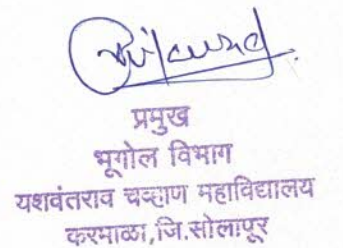 प्रमुख
भूगोल विभाग
यशवंतराव चव्हाण महाविद्यालय
करमाळा,जि.सोलापूर